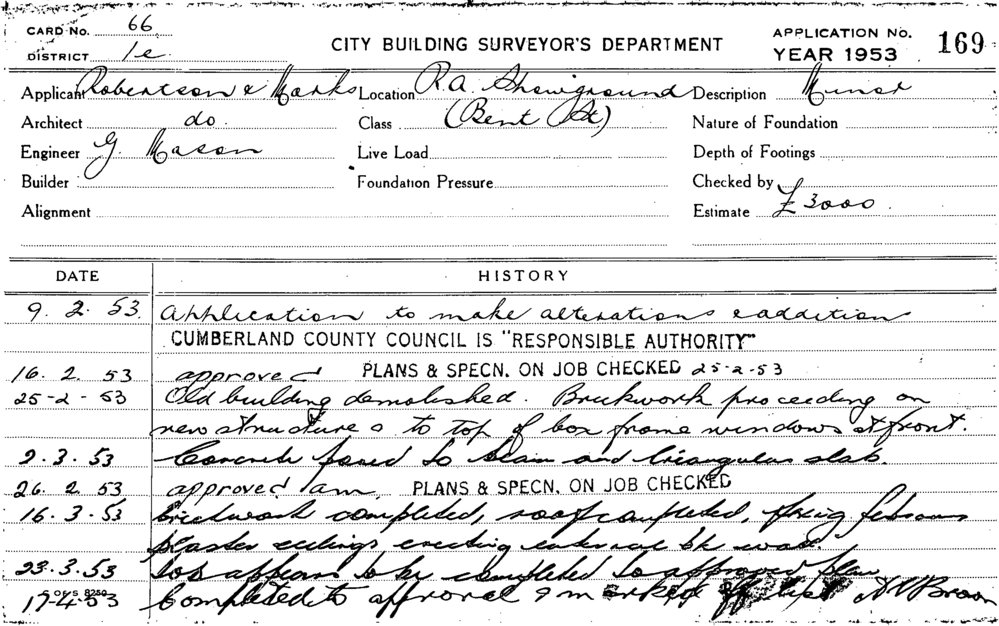 CARD No. 66
DISTRICT 1e
CITY BUILDING SURVEYOR'S DEPARTMENT
APPLICATION No.
YEAR 1953
169
Applicant Robertson & Marks Location R.A. Showground Description Minor
Architect do. Class (Bent St) Nature of Foundation
Engineer G. Mason Live Load Depth of Footings
Builder Foundation Pressure Checked by
Alignment Estimate £3000
DATE HISTORY
9. 2. 53. Application to make alterations & addition
CUMBERLAND COUNTY COUNCIL IS "RESPONSIBLE AUTHORITY"
16. 2. 53 approved PLANS & SPECN. ON JOB CHECKED 25-2-53
25-2-53 Old building demolished. Brickwork proceeding on
new structure to top of box frame windows at front.
2. 3. 53 Concrete poured to beam and triangular slab.
26. 2. 53 approved am. PLANS & SPECN. ON JOB CHECKED
16. 3. 53 Brickwork completed, roof completed, fixing fibrous
plaster ceilings erecting bk wall.
23. 3. 53 Job appears to be completed to approved plan
17-4-53 Completed to approval & marked off list